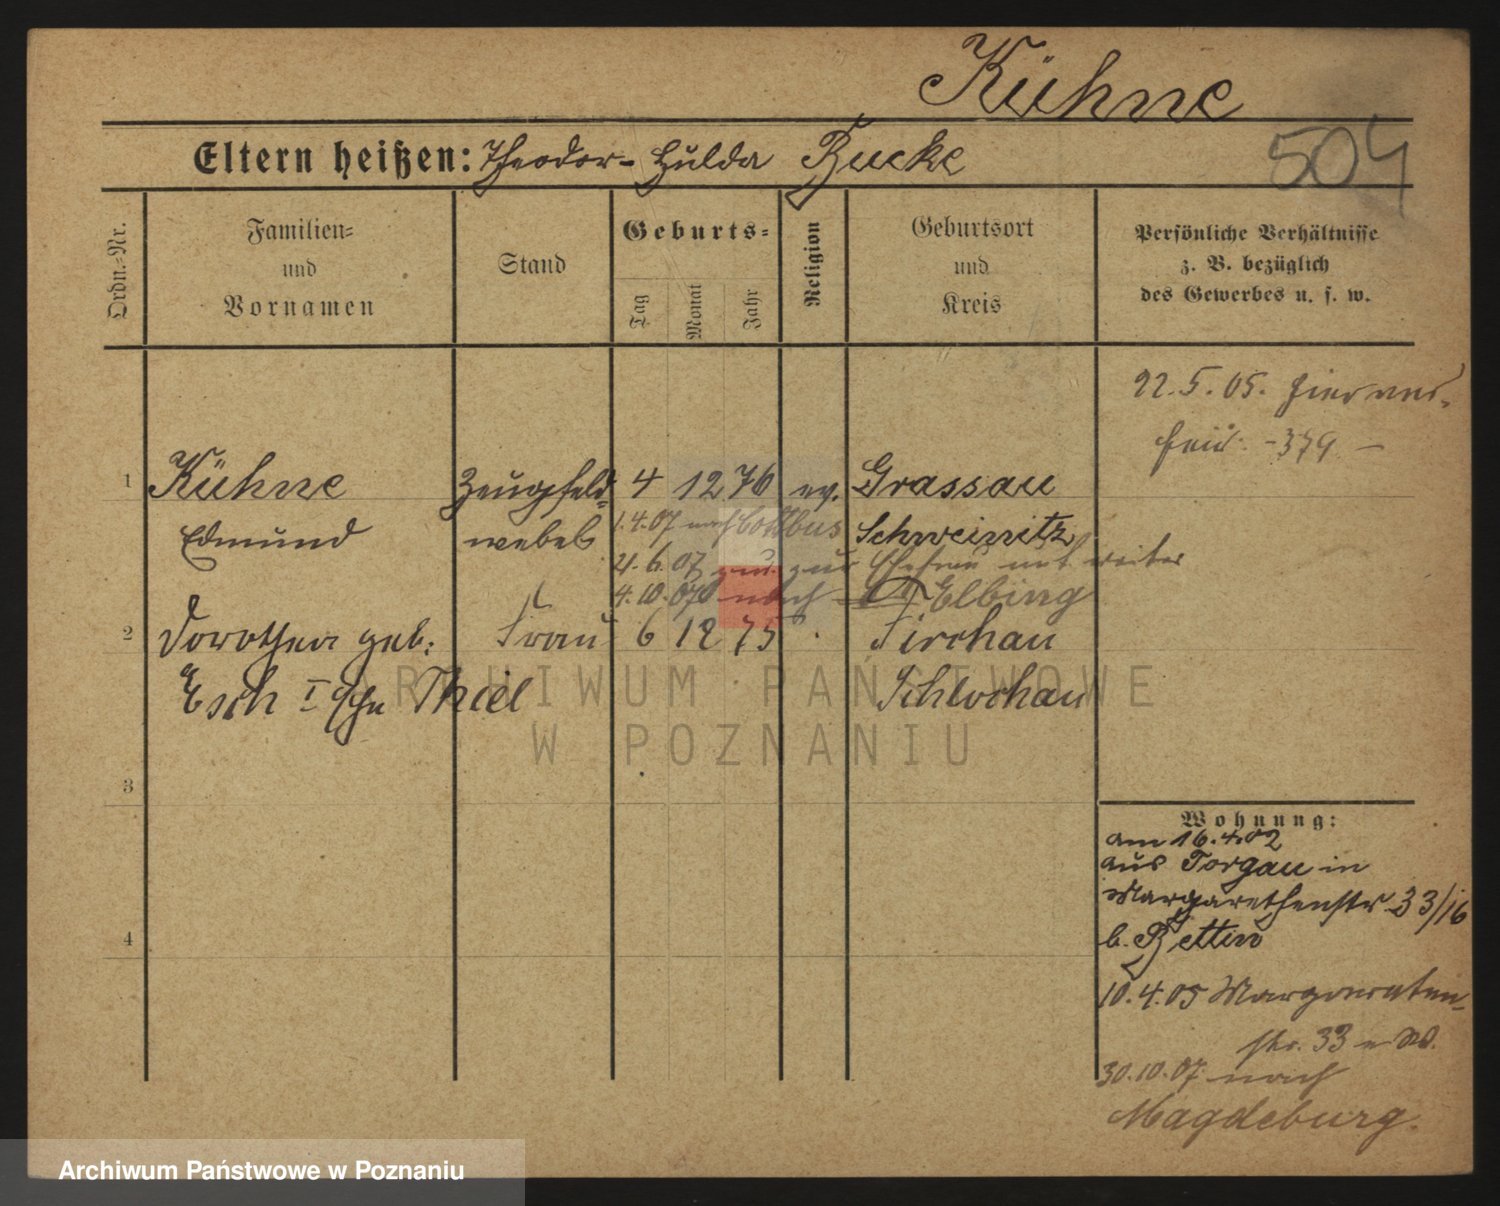 Kühne
504
Eltern heißen: Theodor - Hulda Bucke
Ordn.-Nr.
Familien-
und
Vornamen
Stand
Geburts-
Tag
Monat
Jahr
Religion
Geburtsort
und
Kreis
Persönliche Verhältnisse
z. B. bezüglich
des Gewerbes u. s. w.
22.5.05. hier
- 379 -
1 Kühne Zeugfeld- 4 12 76 ev. Grassau
Edmund webel Schweinitz
1.4.07 nach Cottbus
21.6.07 zur Ehefrau
4.10.07 nach Elbing
2 Dorothea geb. Frau 6 12 75 Firchau
Esch I. Ehe Thiel Schlochau
ARCHIWUM PAŃSTWOWE
W POZNANIU
3
4
Wohnung:
am 16.4.02
aus Torgau in
Margarethenstr 33/16
b. Bettin
10.4.05 Margareten-
str. 33
30.10.07 nach
Magdeburg.
Archiwum Państwowe w Poznaniu